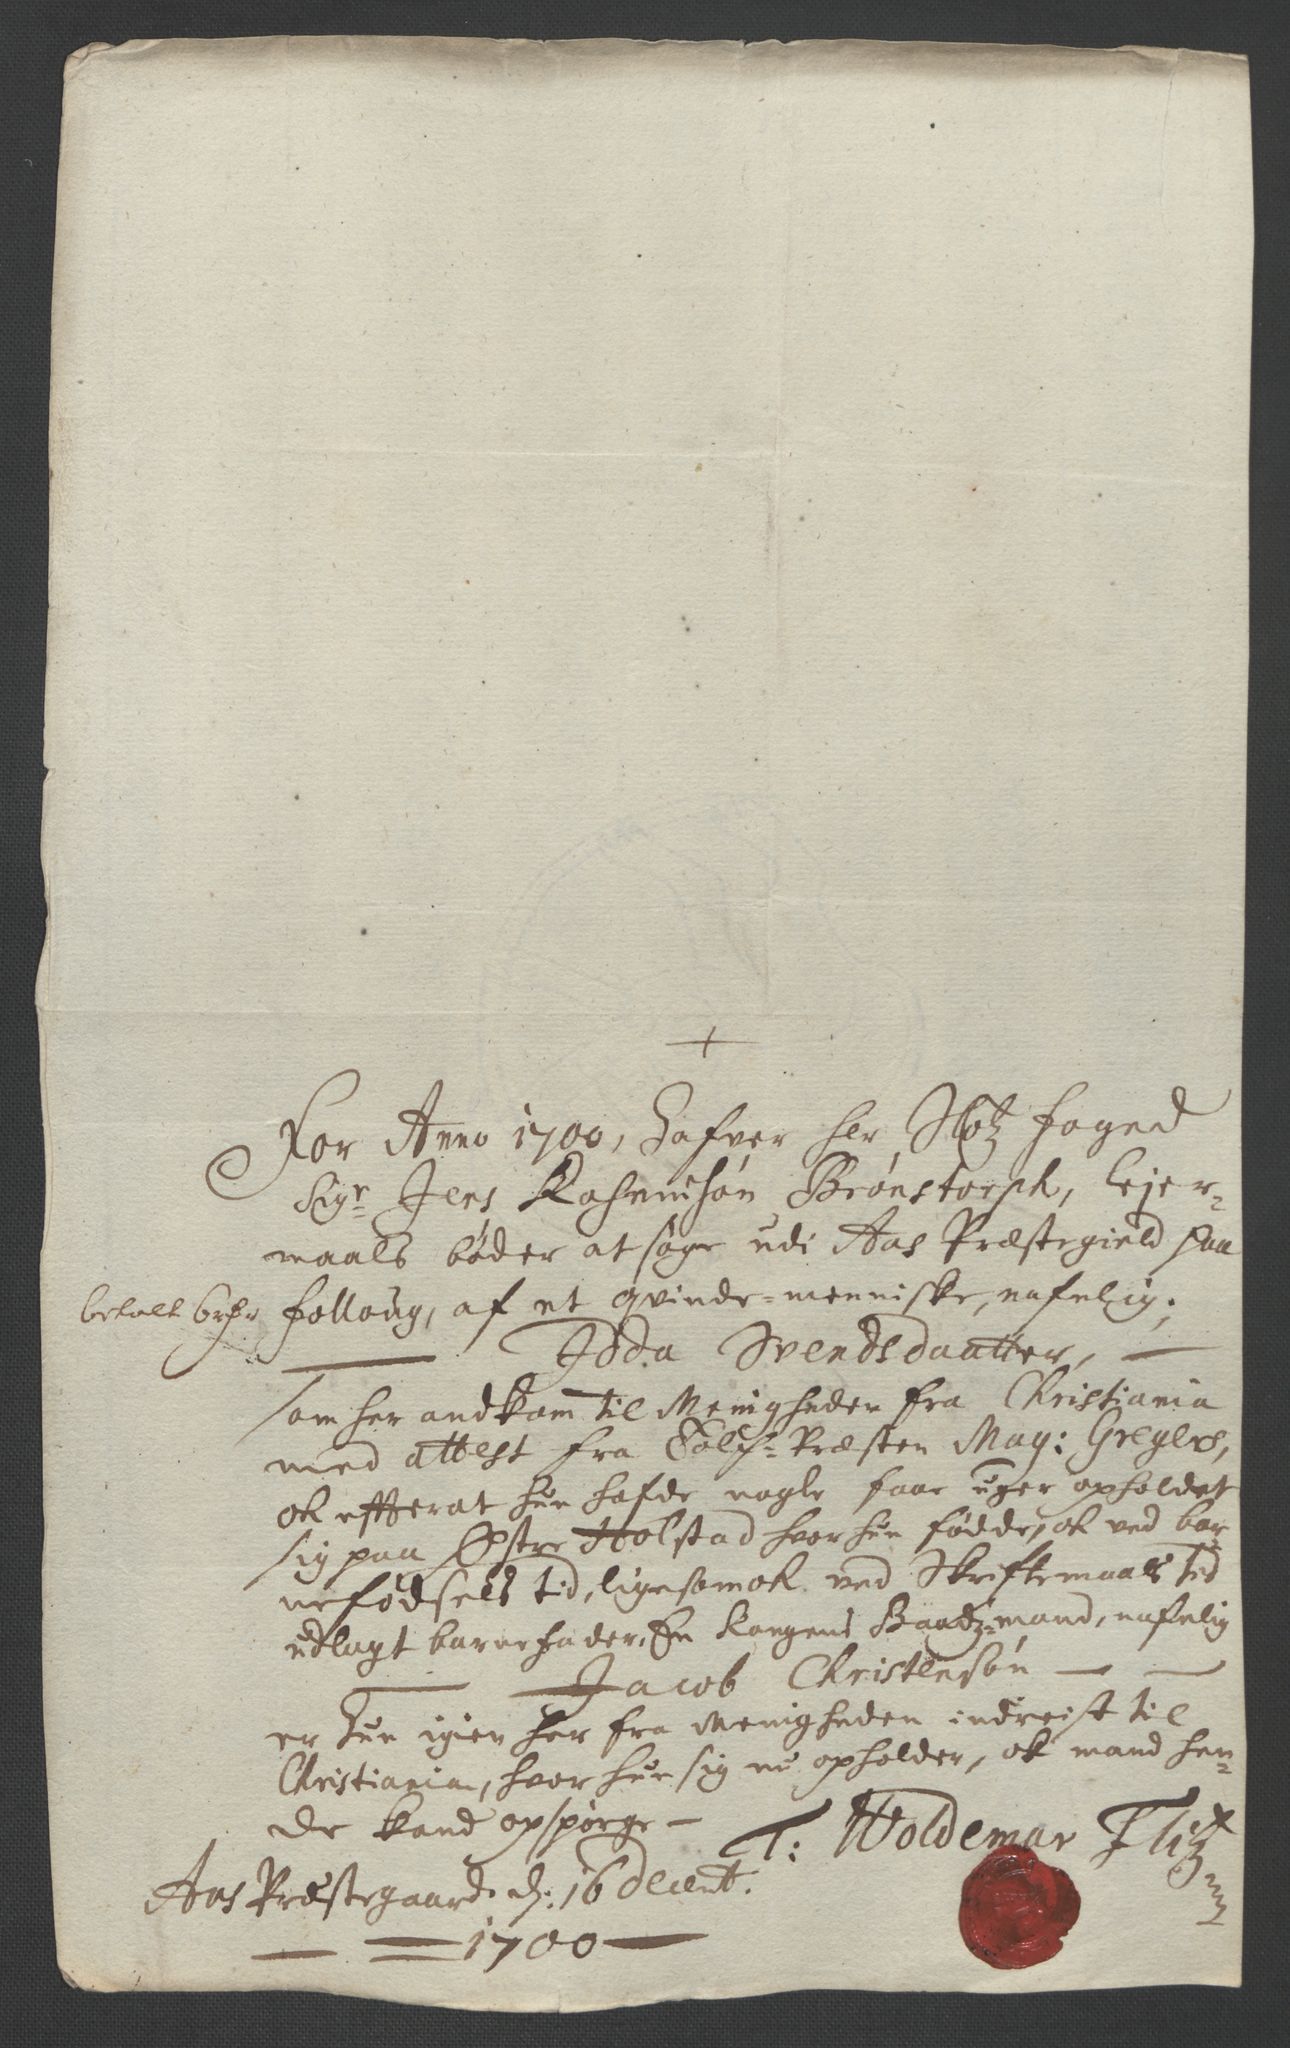 +
For Anno 1700, hafver her Slotz foged
Sigr Jens Rasmusøn Brønstorph, Lejer-
maals bøder at søge udi Aas Præstegield paa
betalt
folloug, af et qvinde-menniske, nafnlig;
Idda Svendsdaatter,
som her andkom til Menigheden fra Christiania
med attest fra Præsten Mag: Gregers,
ok effterat hun hafde nogle faae uger opholdet
sig paa Østre Holstad hvor hun fødde, ok ved bar-
nefødsels tid, ligesom ok ved Skriftemaals tid
udlagt barnefader, En Kongens Baadzmand, nafnlig
Jacob Christensøn
er hun igien her fra Menigheden indreist til
Christiania, hvor hun sig nu opholder, ok mand hen-
de kand opspørge
T: Woldemar
Aas Præstegaard d: 16 Decemb.
1700